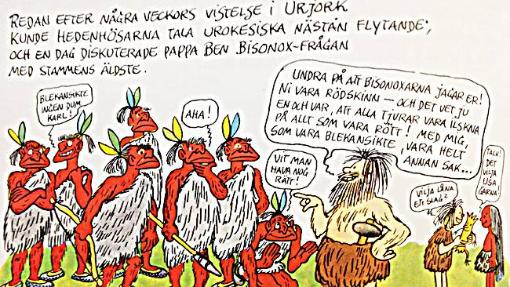 REDAN EFTER NÅGRA VECKORS VISTELSE I URJORK
KUNDE HEDENHÖSARNA TALA UROKESISKA NÄSTAN FLYTANDE,
OCH EN DAG DISKUTERADE PAPPA BEN BISONOX-FRÅGAN
MED STAMMENS ÄLDSTE.
BLEKANSIKTE
INGEN DUM
KARL!
AHA!
UNDRA PÅ ATT BISONOXARNA JAGAR ER!
NI VARA RÖDSKINN – OCH DET VET JU
EN OCH VAR, ATT ALLA TJURAR VARA ILSKNA
PÅ ALLT SOM VARA RÖTT! MED MIG,
SOM VARA BLEKANSIKTE, VARA HELT
ANNAN SAK...
VIT MAN
HAVA NOG
RÄTT!
VILJA LÅNA
ETT SLAG?
TACK
DET
VILJA